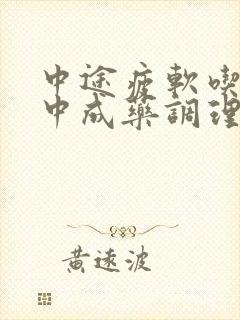 中途疲軟喫
中成藥調理
黃遠波